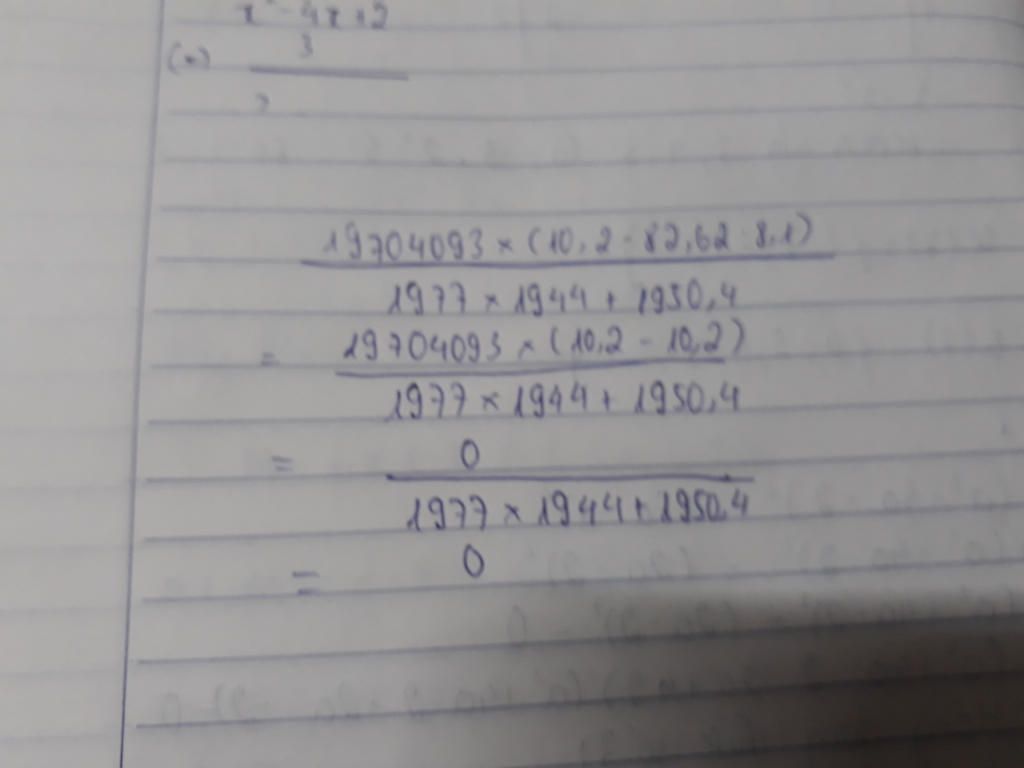 x² - 4x + 2
3
19704093 × (10,2 - 82,62 : 8,1)
1977 × 1944 + 1950,4
= 19704093 × (10,2 - 10,2)
1977 × 1944 + 1950,4
= 0
1977 × 1944 + 1950,4
= 0